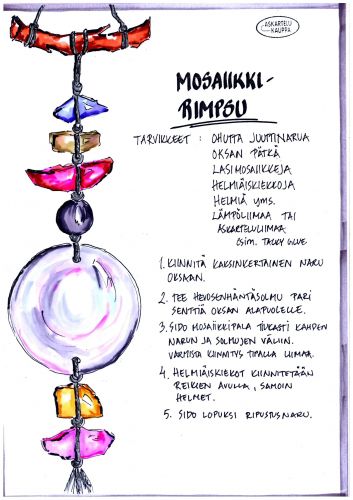 ASKARTELU
KAUPPA
MOSAIIKKI-
RIMPSU
TARVIKKEET : OHUTTA JUUTTINARUA
OKSAN PÄTKÄ
LASIMOSAIIKKEJA
HELMIÄISKIEKKOJA
HELMIÄ YMS.
LÄMPÖLIIMAA TAI
ASKARTELULIIMAA
ESIM. TACKY GLUE
1. KIINNITÄ KAKSINKERTAINEN NARU
OKSAAN.
2. TEE HEVOSENHÄNTÄSOLMU PARI
SENTTIÄ OKSAN ALAPUOLELLE.
3. SIDO MOSAIIKKIPALA TIUKASTI KAHDEN
NARUN JA SOLMUJEN VÄLIIN.
VARMISTA KIINNITYS TIPALLA LIIMAA.
4. HELMIÄISKIEKOT KIINNITETÄÄN
REIKIEN AVULLA, SAMOIN
HELMET.
5. SIDO LOPUKSI RIPUSTUSNARU.